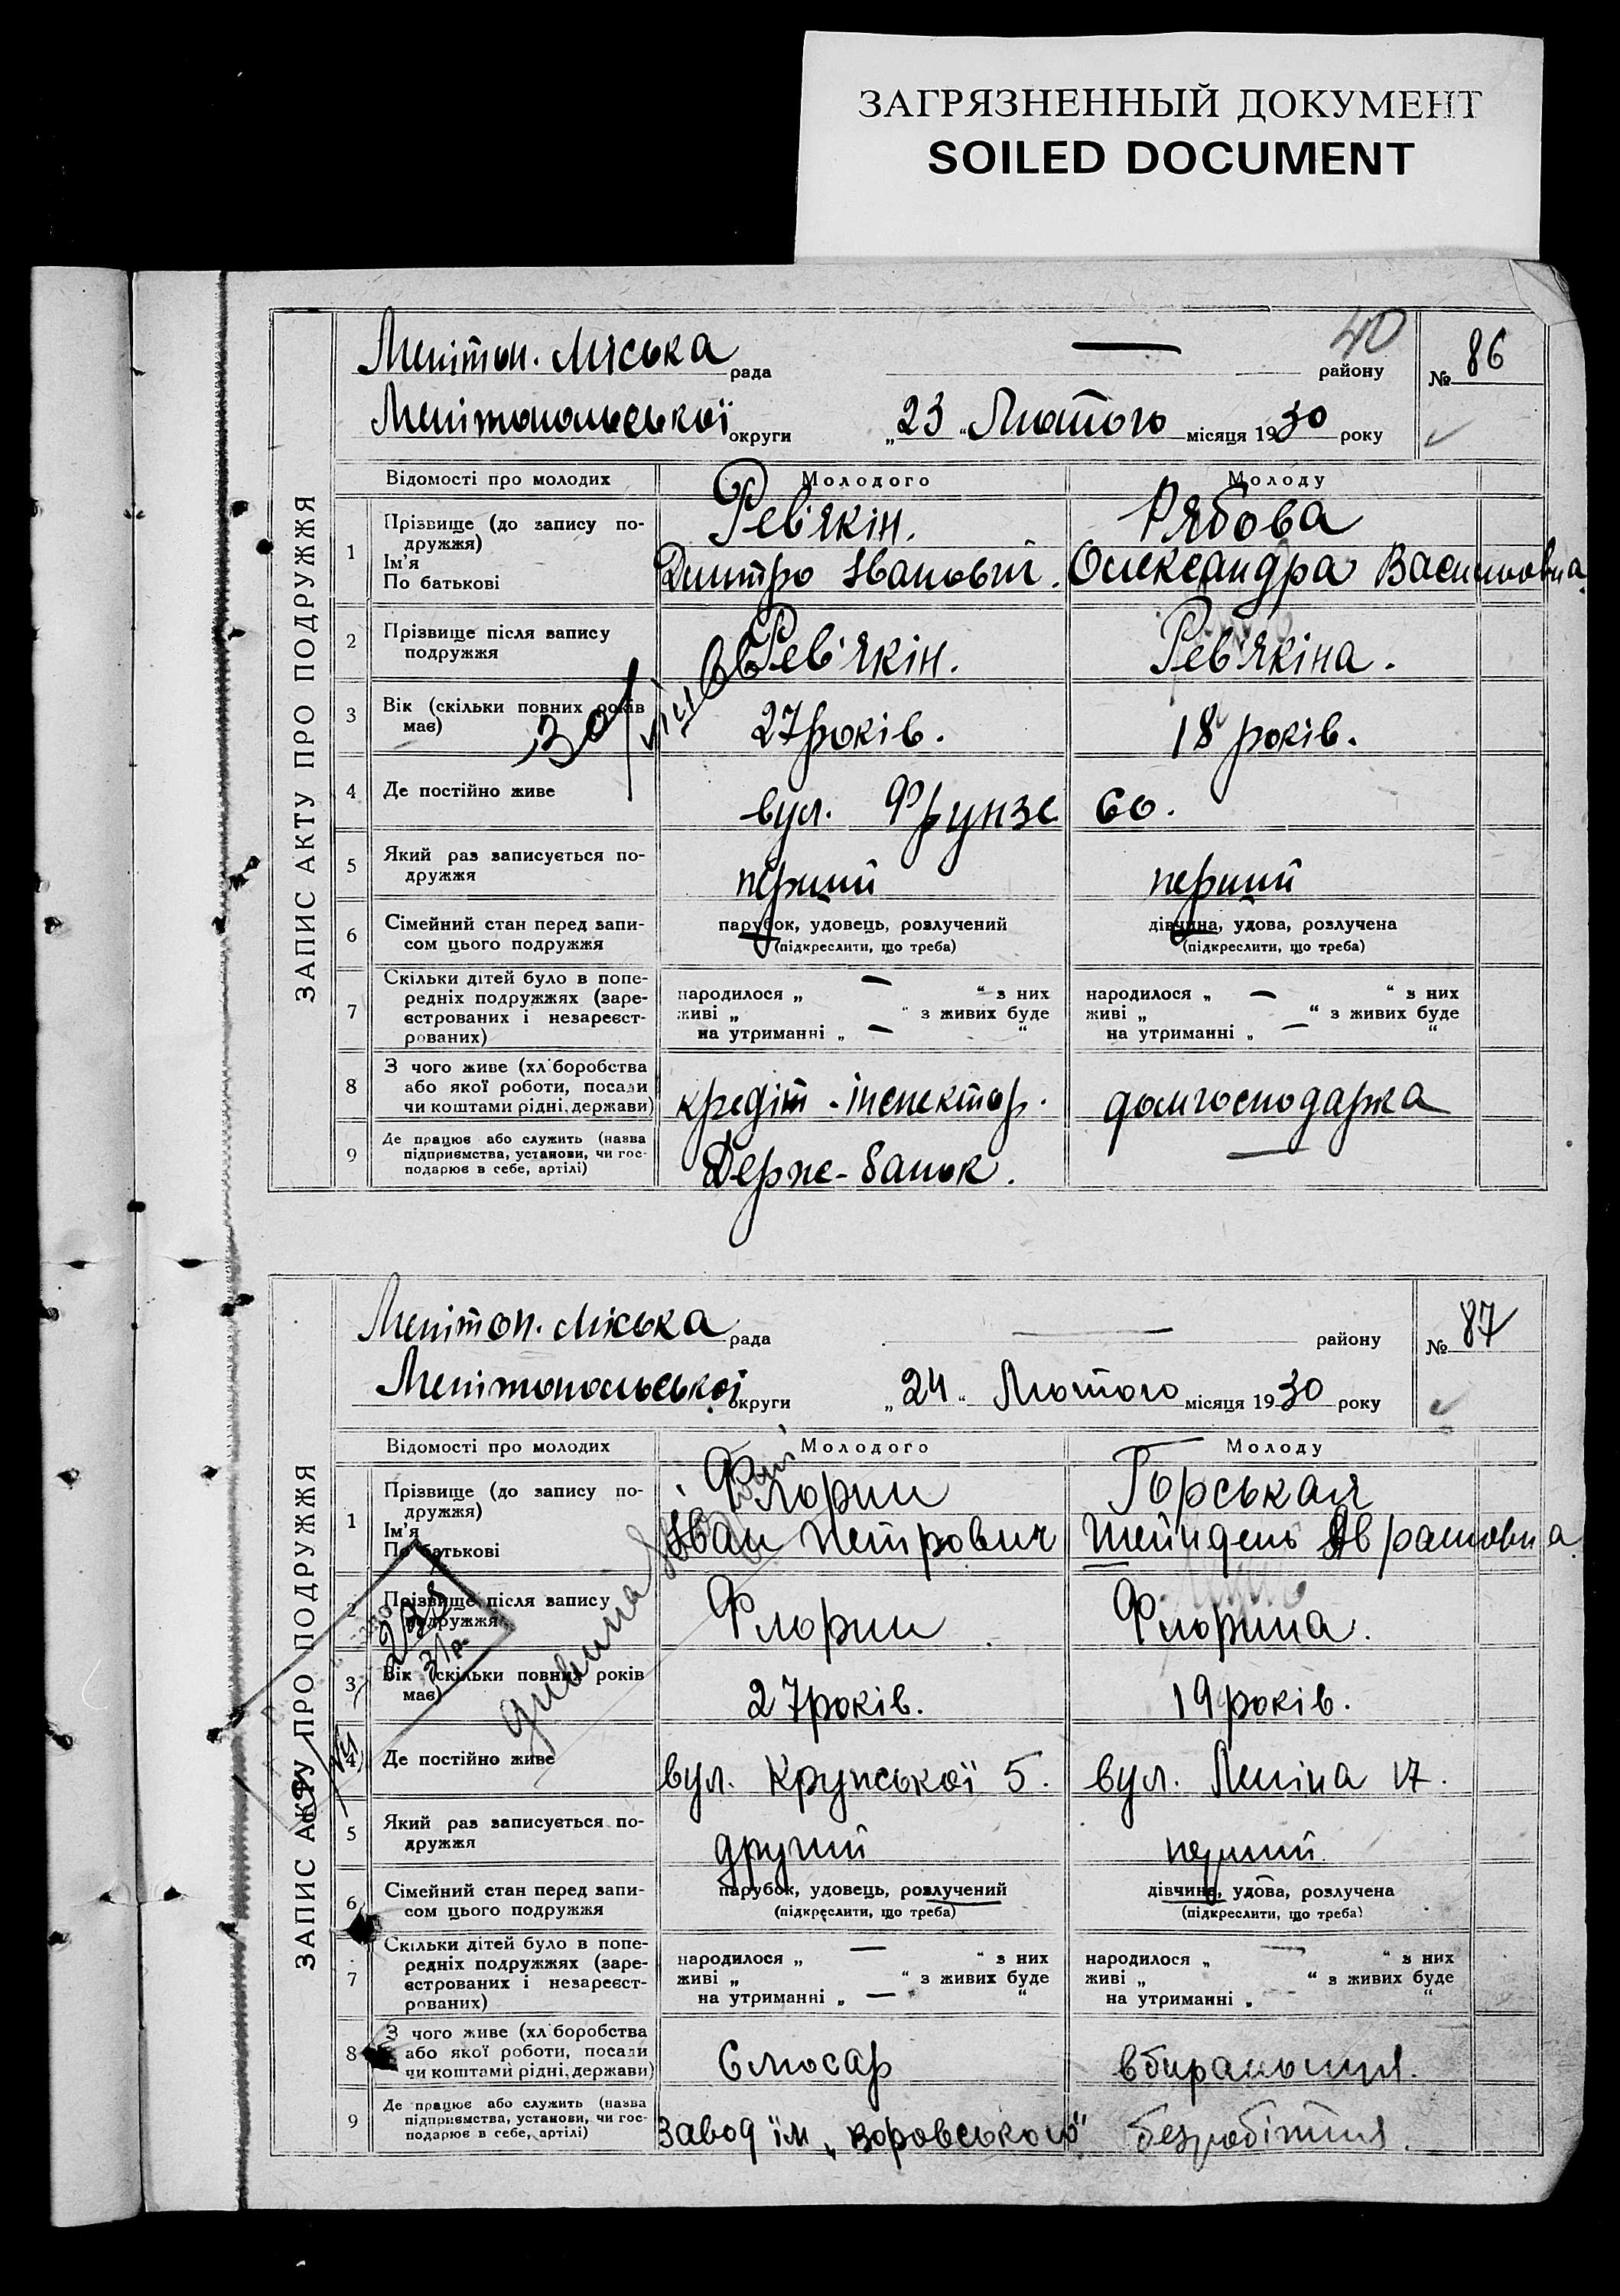 ЗАГРЯЗНЕННЫЙ ДОКУМЕНТ
SOILED DOCUMENT
40
ЗАПИС АКТУ ПРО ПОДРУЖЖЯ
Мелітоп. Міська рада району № 86
Мелітопольської округи „23“ Лютого місяця 1930 року
Відомості про молодих Молодого Молоду
1 Прізвище (до запису по-
дружжя)
Ім'я
По батькові
Рев'якін. Рябова
Дмитро Іванович. Олександра Василівна
2 Прізвище після запису
подружжя
Рев'якін. Рев'якіна.
3 Вік (скільки повних років
має)
27 років. 18 років.
4 Де постійно живе вул. Фрунзе 60.
5 Який раз записується по-
дружжя
перший перший
6 Сімейний стан перед запи-
сом цього подружжя
парубок, удовець, розлучений дівчина, удова, розлучена
(підкреслити, що треба) (підкреслити, що треба)
7 Скільки дітей було в попе-
редніх подружжях (заре-
єстрованих і незареєст-
рованих)
народилося „ — “ з них народилося „ — “ з них
живі „ “ з живих буде живі „ “ з живих буде
на утриманні „ — “ на утриманні „ — “
8 З чого живе (хліборобства
або якої роботи, посади
чи коштами рідні, держави)
кредіт-інспектор. домгосподарка
9 Де працює або служить (назва
підприємства, установи, чи гос-
подарює в себе, артілі)
Держ-банк. —
ЗАПИС АКТУ ПРО ПОДРУЖЖЯ
Мелітоп. Міська рада району № 87
Мелітопольської округи „24“ Лютого місяця 1930 року
Відомості про молодих Молодого Молоду
1 Прізвище (до запису по-
дружжя)
Ім'я
По батькові
Флорин Горськая
Іван Петрович Шейндель Аврамовна
2 Прізвище після запису
подружжя
Флорин Флорина.
3 Вік (скільки повних років
має)
27 років. 19 років.
4 Де постійно живе вул. Крупської 5. вул. Леніна 17.
5 Який раз записується по-
дружжя
другий перший
6 Сімейний стан перед запи-
сом цього подружжя
парубок, удовець, розлучений дівчина, удова, розлучена
(підкреслити, що треба) (підкреслити, що треба)
7 Скільки дітей було в попе-
редніх подружжях (заре-
єстрованих і незареєст-
рованих)
народилося „ — “ з них народилося „ — “ з них
живі „ “ з живих буде живі „ “ з живих буде
на утриманні „ — “ на утриманні „ “
8 З чого живе (хліборобства
або якої роботи, посади
чи коштами рідні, держави)
Слюсар вбиральниця.
9 Де працює або служить (назва
підприємства, установи, чи гос-
подарює в себе, артілі)
Завод ім „Воровського“ безробітня.